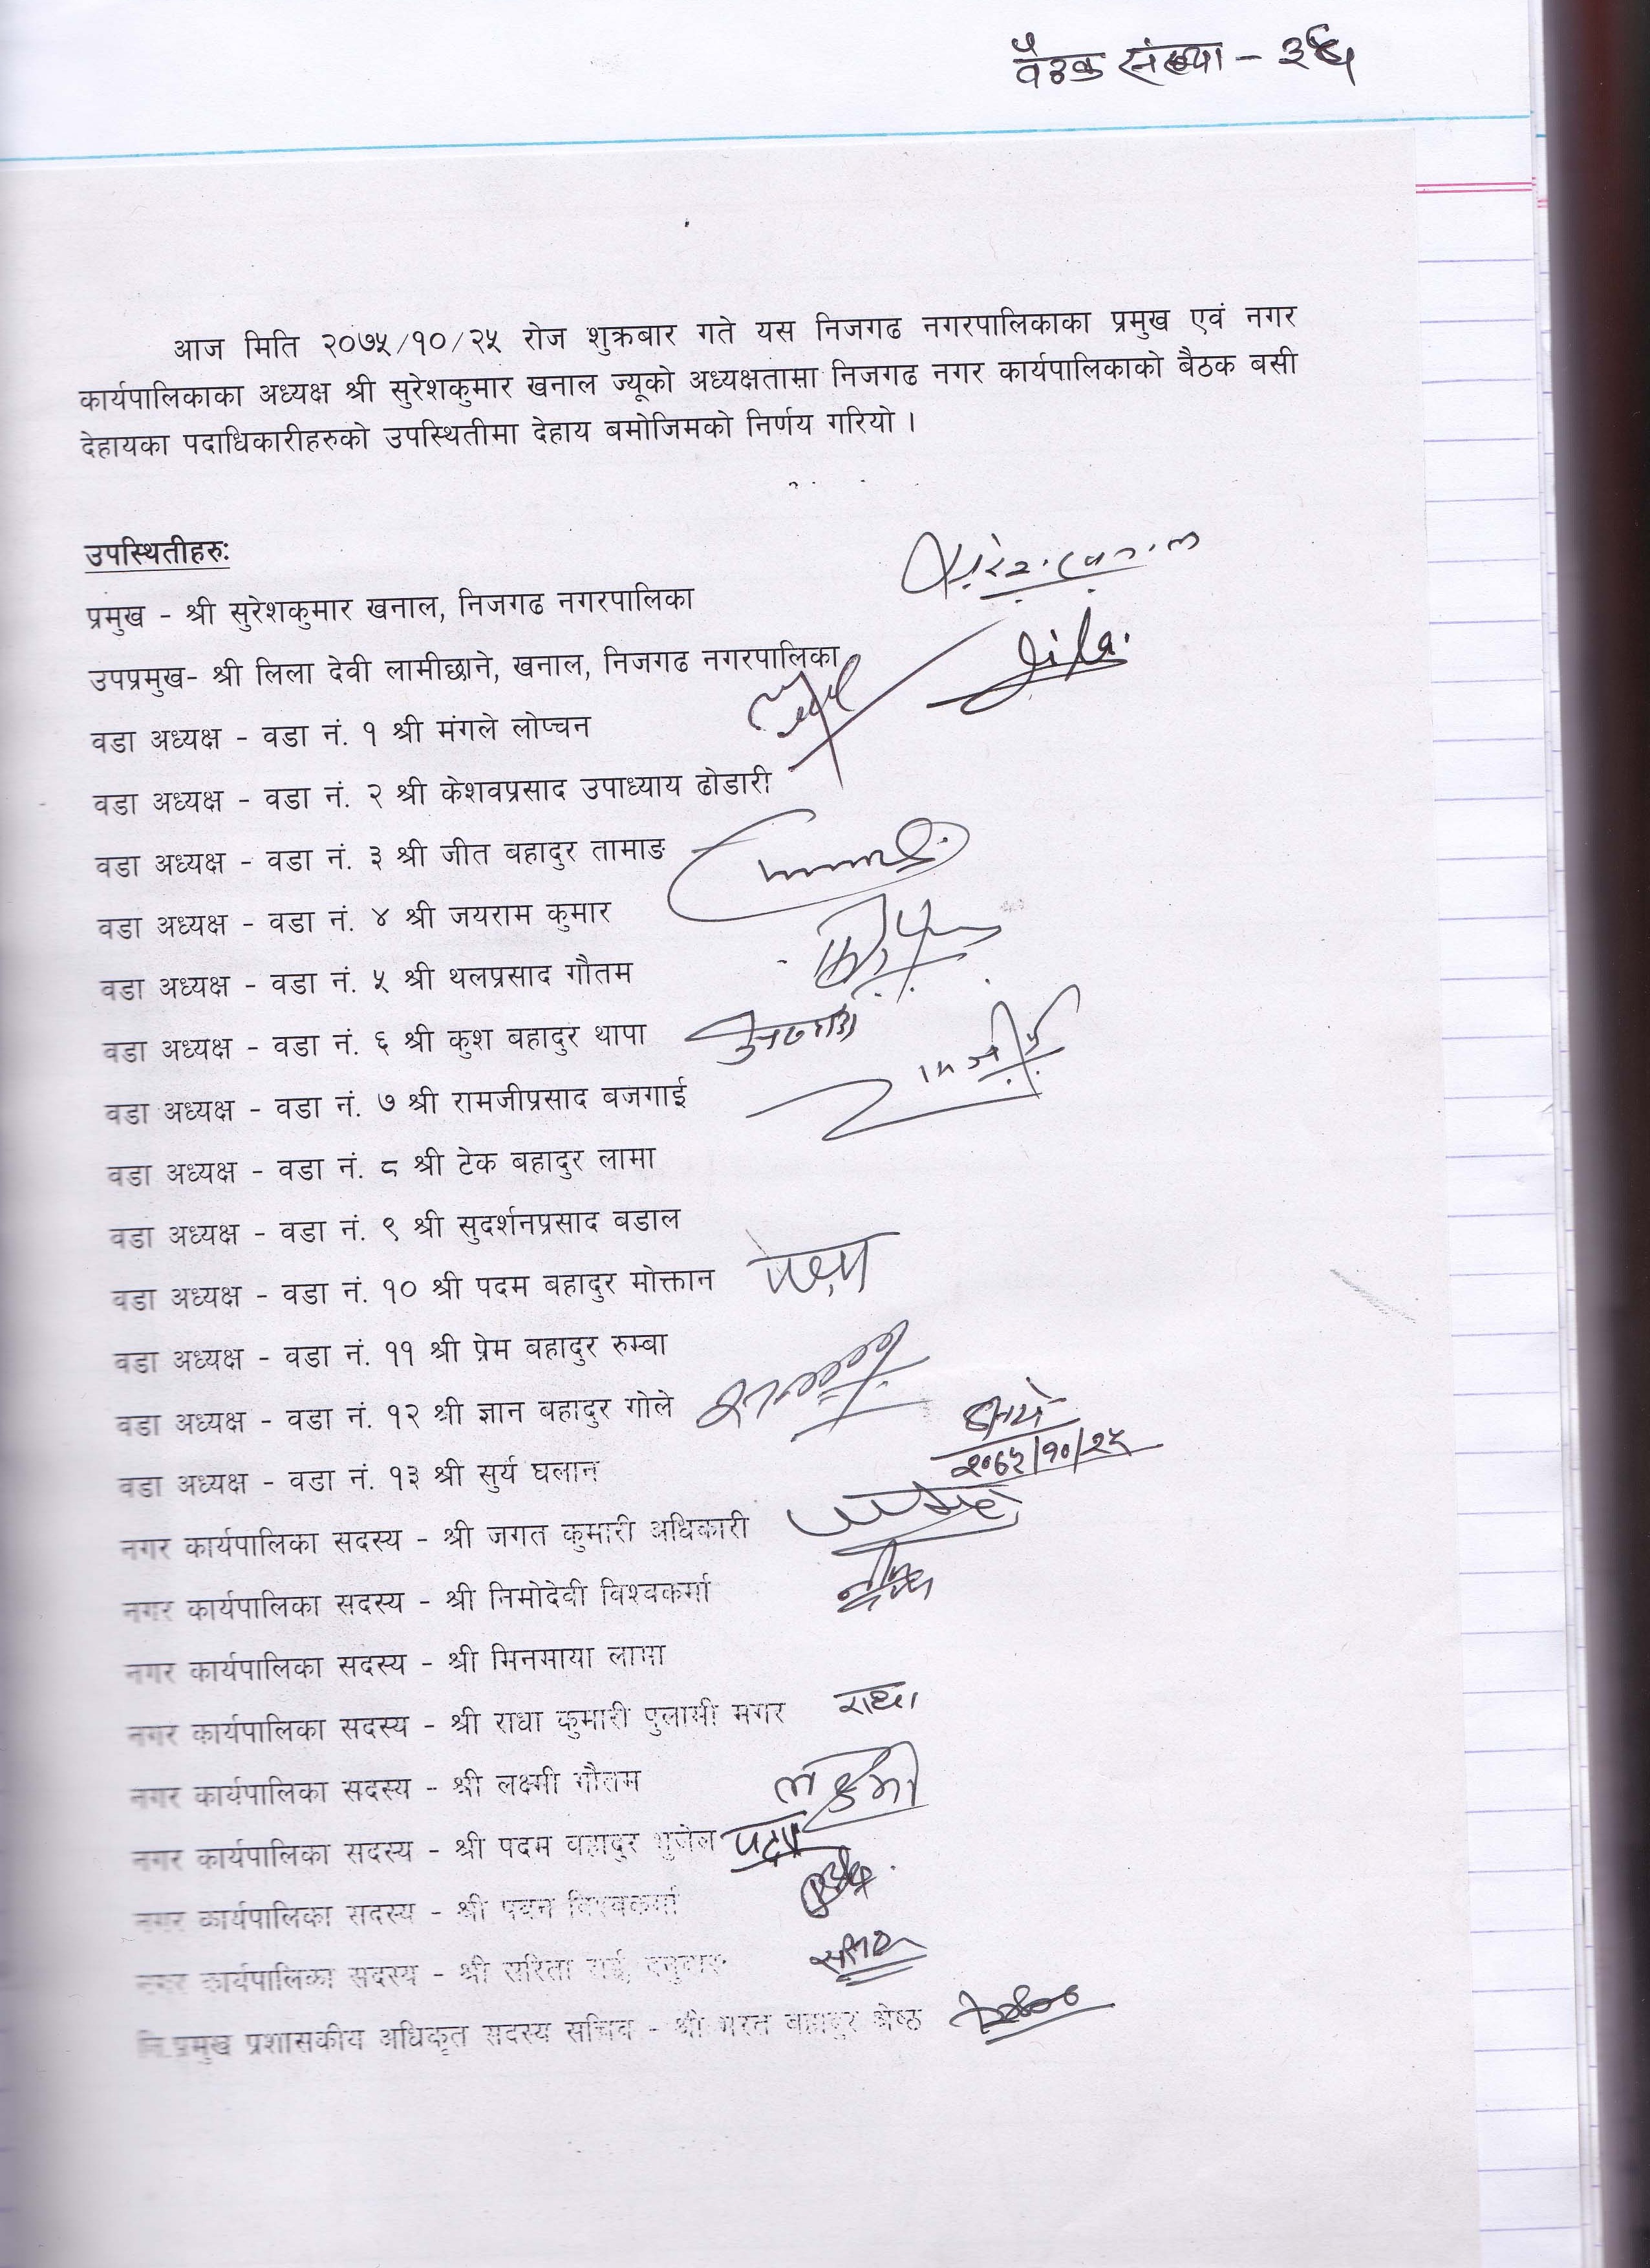 बैठक संख्या -
आज मिति २०७५/१०/२५ रोज शुक्रबार गते यस निजगढ नगरपालिकाका प्रमुख एवं नगर
कार्यपालिकाका अध्यक्ष श्री सुरेशकुमार खनाल ज्यूको अध्यक्षतामा निजगढ नगर कार्यपालिकाको बैठक बसी
देहायका पदाधिकारीहरुको उपस्थितीमा देहाय बमोजिमको निर्णय गरियो ।
उपस्थितीहरु:
प्रमुख - श्री सुरेशकुमार खनाल, निजगढ नगरपालिका
उपप्रमुख- श्री लिला देवी लामीछाने, खनाल, निजगढ नगरपालिका
lila.
वडा अध्यक्ष - वडा नं. १ श्री मंगले लोप्चन
वडा अध्यक्ष - वडा नं. २ श्री केशवप्रसाद उपाध्याय ढोडारी
वडा अध्यक्ष - वडा नं. ३ श्री जीत बहादुर तामाङ
वडा अध्यक्ष - वडा नं. ४ श्री जयराम कुमार
वडा अध्यक्ष - वडा नं. ५ श्री थलप्रसाद गौतम
वडा अध्यक्ष - वडा नं. ६ श्री कुश बहादुर थापा
वडा अध्यक्ष - वडा नं. ७ श्री रामजीप्रसाद बजगाई
वडा अध्यक्ष - वडा नं. ८ श्री टेक बहादुर लामा
वडा अध्यक्ष - वडा नं. ९ श्री सुदर्शनप्रसाद बडाल
वडा अध्यक्ष - वडा नं. १० श्री पदम बहादुर मोक्तान
वडा अध्यक्ष - वडा नं. ११ श्री प्रेम बहादुर रुम्बा
वडा अध्यक्ष - वडा नं. १२ श्री ज्ञान बहादुर गोले
वडा अध्यक्ष - वडा नं. १३ श्री सुर्य घलान
२०७५/१०/२५
नगर कार्यपालिका सदस्य - श्री जगत कुमारी अधिकारी
नगर कार्यपालिका सदस्य - श्री निमोदेवी विश्वकर्मा
नगर कार्यपालिका सदस्य - श्री मिनमाया लामा
नगर कार्यपालिका सदस्य - श्री राधा कुमारी पुलामी मगर राधा
नगर कार्यपालिका सदस्य - श्री लक्ष्मी गौतम लक्ष्मी
नगर कार्यपालिका सदस्य - श्री पदम बहादुर भुजेल पदम
नगर कार्यपालिका सदस्य - श्री पवन विश्वकर्मा
नगर कार्यपालिका सदस्य - श्री सरिता राई, दनुवार
नि.प्रमुख प्रशासकीय अधिकृत सदस्य सचिव - श्री भरत बहादुर श्रेष्ठ